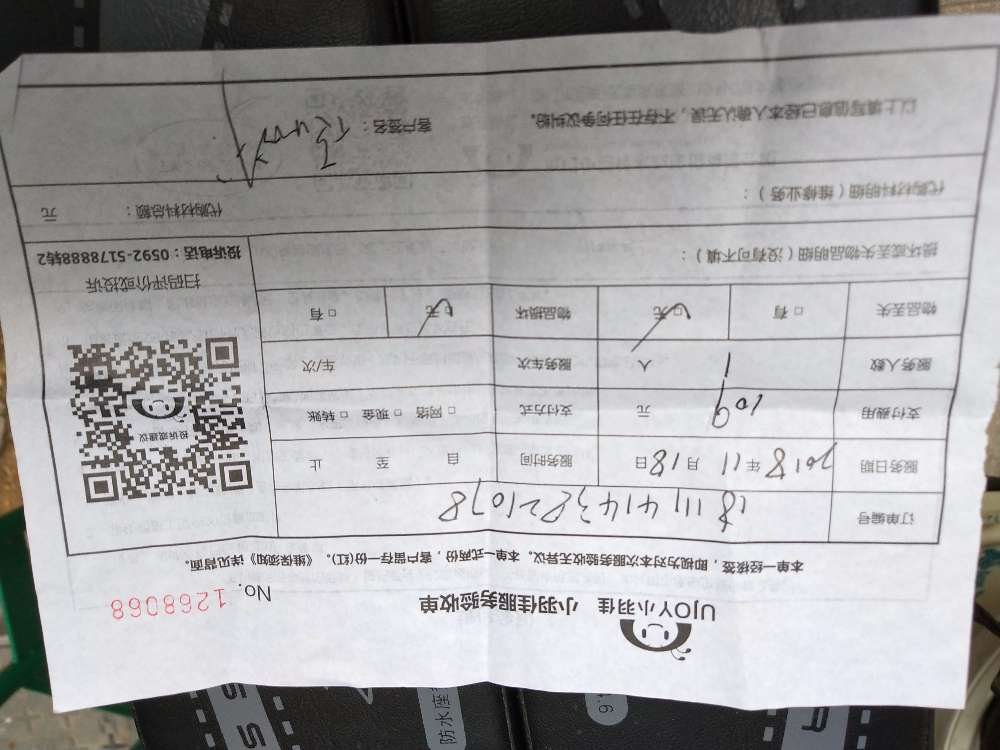 UJOY小羽佳 小羽佳服务验收单
No. 1268068
本单一经核签，即视为对本次服务验收无异议。本单一式两份，客户留存一份(红)。《维保须知》详见背面。
订单编号
服务日期 2018年11月18日 服务时间 自 至 止
支付费用 109 元 支付方式 □网络 □现金 □转账
服务人数 1 人 服务车次 车/次
物品丢失 □有 □无 物品损坏 □无 □有
投诉或建议
扫码评价或投诉
投诉电话：0592-5178888转2
损坏或丢失物品明细（没有可不填）：
代购材料明细（维修业务）： 代购材料总额： 元
以上填写信息已经本人确认无误，不存在任何争议纠纷。 客户签名：
防水座